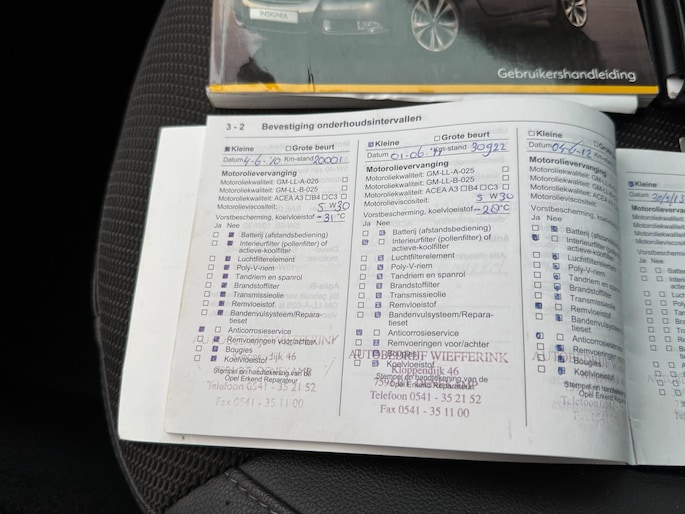 INSIGNIA
Gebruikershandleiding
3 - 2 Bevestiging onderhoudsintervallen
Kleine Grote beurt
Datum 4-6-10 Km-stand 20001
Motorolievervanging
Motoroliekwaliteit: GM-LL-A-025
Motoroliekwaliteit: GM-LL-B-025
Motoroliekwaliteit: ACEA A3 B4 C3
Motorolieviscositeit: 5 W 30
Vorstbescherming, koelvloeistof -31 °C
Ja Nee
Batterij (afstandsbediening)
Interieurfilter (pollenfilter) of
actieve-koolfilter
Luchtfilterelement
Poly-V-riem
Tandriem en spanrol
Brandstoffilter
Transmissieolie
Remvloeistof
Bandenvulsysteem/Repara-
tieset
Anticorrosieservice
Remvoeringen voor/achter
Bougies
Koelvloeistof
Stempel en handtekening van de
Opel Erkend Reparateur
Telefoon 0541 - 35 21 52
Fax 0541 - 35 11 00
Kleine Grote beurt
Datum 01-06-11 Km-stand 30922
Motorolievervanging
Motoroliekwaliteit: GM-LL-A-025
Motoroliekwaliteit: GM-LL-B-025
Motoroliekwaliteit: ACEA A3 B4 C3
Motorolieviscositeit: 5 W 30
Vorstbescherming, koelvloeistof -28 °C
Ja Nee
Batterij (afstandsbediening)
Interieurfilter (pollenfilter) of
actieve-koolfilter
Luchtfilterelement
Poly-V-riem
Tandriem en spanrol
Brandstoffilter
Transmissieolie
Remvloeistof
Bandenvulsysteem/Repara-
tieset
Anticorrosieservice
Remvoeringen voor/achter
Bougies
AUTOBEDRIJF WIEFFERINK
Koelvloeistof
Kloppendijk 46
Stempel en handtekening van de
Opel Erkend Reparateur
Telefoon 0541 - 35 21 52
Fax 0541 - 35 11 00
Kleine Grote
Datum 04-6-12 Km-stand
Motorolievervanging
Motoroliekwaliteit: GM-LL
Motoroliekwaliteit: GM-LL
Motoroliekwaliteit: ACEA
Motorolieviscositeit:
Vorstbescherming, koelvl
Ja Nee
Batterij (afstandsb
Interieurfilter
actieve-koolfilter
Luchtfilterelement
Poly-V-riem
Tandriem en spa
Brandstoffilter
Transmissieolie
Remvloeistof
Bandenvulsysteem
tieset
Anticorrosieservice
Remvoeringen
Bougies
Koelvloeistof
Stempel en handteken
Opel Erkend Repar
Kleine
Datum 30/5/13
Motorolievervang
Ja Nee